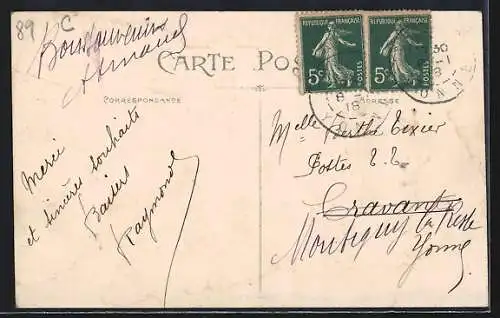 89 C
Bons souvenirs
Armand
CARTE POS
CORRESPONDANCE
ADRESSE
REPUBLIQUE FRANÇAISE
5c
POSTES
REPUBLIQUE FRANÇAISE
5c
POSTES
Merci
et sincères souhaits
Baisers
Raymond
Melle Berthe Texier
Postes T. T.
Cravant
Montigny la Resle
Yonne